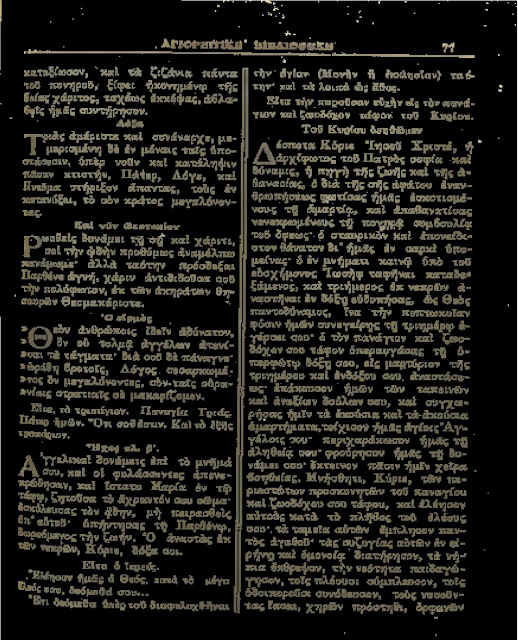 ΑΓΙΟΡΕΙΤΙΚΗ ΒΙΒΛΙΟΘΗΚΗ 77
καταξίωσον, καὶ τὰ ζιζάνια πάντα
τοῦ πονηροῦ, ξίφει ἠκονημένῳ τῆς
θείας χάριτος, ταχέως ἐκκόψας, ἀβλα-
βεῖς ἡμᾶς συντήρησον.
Δόξα
Τριὰς ἀμέριστε καὶ συνάναρχε, με-
μερισμένη δὲ ἐν μόναις ταῖς ὑπο-
στάσεσιν, ὑπὲρ νοῦν καὶ κατάληψιν
πᾶσαν κτιστήν, Πάτερ, Λόγε, καὶ
Πνεῦμα στήριξον ἅπαντας, τοὺς ἐν
κατανύξει, τὸ σὸν κράτος μεγαλύνον-
τας.
Καὶ νῦν Θεοτοκίον
Ῥωσθεὶς δυνάμει τῇ σῇ καὶ χάριτι,
σοὶ τὴν ᾠδὴν προθύμως ἀναμέλπω
ἀλλὰ ταύτην πρόσδεξαι
Παρθένε ἁγνή, χάριν ἀντιδιδοῦσα
τὴν πολύφωτον, ἐκ τῶν ἀκηράτων θη-
σαυρῶν Θεομακάριστε.
Ὁ εἱρμὸς
»Θεὸν ἀνθρώποις ἰδεῖν ἀδύνατον,
»ὃν οὐ τολμᾷ ἀγγέλων ἀτενί-
»σαι τὰ τάγματα· διὰ σοῦ δὲ πάναγνε
»ὡράθη βροτοῖς, Λόγος σεσαρκωμέ-
»νος ὃν μεγαλύνοντες, σὺν ταῖς οὐρα-
»νίαις στρατιαῖς σὲ μακαρίζομεν.
Εἶτα, τὸ τρισάγιον. Παναγία Τριάς.
Πάτερ ἡμῶν. Ὅτι σοῦ ἐστιν. Καὶ τὸ ἑξῆς
τροπάριον.
Ἦχος πλ. β΄.
Ἀγγελικαὶ δυνάμεις ἐπὶ τὸ μνῆμά
σου, καὶ οἱ φυλάσσοντες ἀπενε-
κρώθησαν, καὶ ἵστατο Μαρία ἐν τῷ
τάφῳ, ζητοῦσα τὸ ἄχραντόν σου σῶμα·
ἐσκύλευσας τὸν ᾅδην, μὴ πειρασθεὶς
ὑπ᾿ αὐτοῦ· ὑπήντησας τῇ Παρθένῳ,
δωρούμενος τὴν ζωήν. Ὁ ἀναστὰς ἐκ
τῶν νεκρῶν, Κύριε, δόξα σοι.
Εἶτα ὁ ἱερεύς.
Ἐλέησον ἡμᾶς ὁ Θεός, κατὰ τὸ μέγα
ἔλεός σου, δεόμεθά σου...
Ἔτι δεόμεθα ὑπὲρ τοῦ διαφυλαχθῆναι
τὴν ἁγίαν (Μονὴν ἢ ἐκκλησίαν) ταύ-
την καὶ τὰ λοιπὰ ὡς ἔθος.
Εἶτα τὴν παροῦσαν εὐχὴν εἰς τὸν πανά-
γιον καὶ ζωοδόχον τάφον τοῦ Κυρίου.
Τοῦ Κυρίου δεηθῶμεν
Δέσποτα Κύριε Ἰησοῦ Χριστέ, ἡ
ἀρχίφωτος τοῦ Πατρὸς σοφία καὶ
δύναμις, ἡ πηγὴ τῆς ζωῆς καὶ τῆς ἀ-
θανασίας, ὁ διὰ τῆς σῆς ἀφάτου ἐναν-
θρωπήσεως φωτίσας ἡμᾶς ἐσκοτισμέ-
νους τῇ ἁμαρτίᾳ, καὶ ἀπαθανατίσας
νενεκρωμένους τῇ πονηρᾷ συμβουλίᾳ
τοῦ ὄφεως· ὁ σταυρικὸν καὶ ἐπονείδι-
στον θάνατον δι᾿ ἡμᾶς ἐν σαρκὶ ὑπο-
μείνας· ὁ ἐν μνήματι καινῷ ὑπὸ τοῦ
εὐσχήμονος Ἰωσὴφ ταφῆναι καταδε-
ξάμενος, καὶ τριήμερος ἐκ νεκρῶν ἀ-
ναστῆναι ἐν δόξῃ εὐδοκήσας, ὡς Θεὸς
παντοδύναμος, ἵνα τὴν πεπτωκυῖαν
φύσιν ἡμῶν συνεγείρῃς τῇ τριημέρῳ ἐ-
γέρσει σου· ὁ τὸν πανάγιον καὶ ζωο-
δόχον σου τάφον ὑπεραυγάσας τῇ ὑ-
περφώτῳ δόξῃ σου, εἰς μαρτύριον τῆς
τριημέρου καὶ ἐνδόξου σου, ἀναστάσε-
ως· ἐπάκουσον ἡμῶν τῶν ταπεινῶν
καὶ ἀναξίων δούλων σου, καὶ συγχώ-
ρησας ἡμῖν τὰ ἑκούσια καὶ τὰ ἀκούσια
ἁμαρτήματα, τείχισον ἡμᾶς ἁγίοις Ἀγ-
γέλοις σου· περιχαράκωσον ἡμᾶς τῇ
ἀληθείᾳ σου· φρούρησον ἡμᾶς τῇ δυ-
νάμει σου· ἔκτεινον πᾶσιν ἡμῖν χεῖρα
βοηθείας. Μνήσθητι, Κύριε, τῶν πε-
ριεστώτων προσκυνητῶν τοῦ παναγίου
καὶ ζωοδόχου σου τάφου, καὶ ἐλέησον
αὐτοὺς κατὰ τὸ πλῆθος τοῦ ἐλέους
σου· τὰ ταμεῖα αὐτῶν ἔμπλησον παν-
τὸς ἀγαθοῦ· τὰς συζυγίας αὐτῶν ἐν εἰ-
ρήνῃ καὶ ὁμονοίᾳ διατήρησον, τὰ νή-
πια ἔκθρεψον, τὴν νεότητα παιδαγώ-
γησον, τοῖς πλέουσι σύμπλευσον, τοῖς
ὁδοιποροῦσι συνόδευσον, τοὺς νοσοῦν-
τας ἴασαι, χηρῶν πρόστηθι, ὀρφανῶν